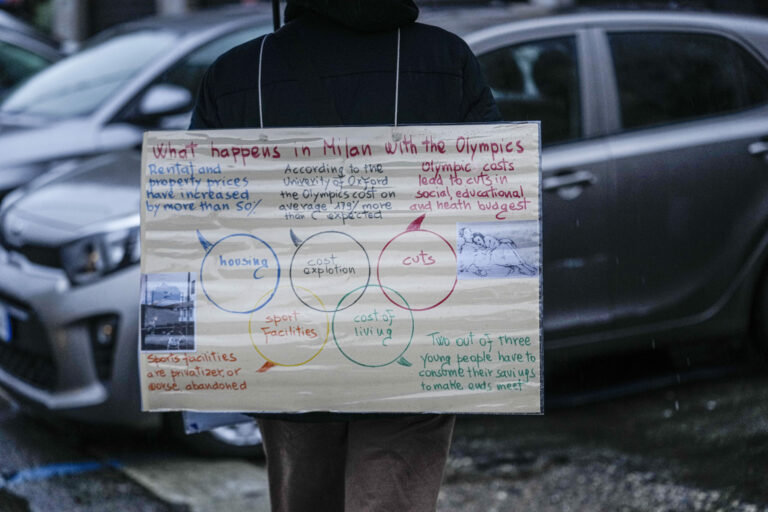 What happens in Milan with the Olympics
Rental and
property prices
have increased
by more than 50%
According to the
Univerity of Oxford
the Olympics cost on
average 179% more
than C expected
Olympic costs
lead to cuts in
social, educational
and heath budgest
housing
cost
explotion
cuts
sport
Facilities
cost of
living
Sports facilities
are privatizer or
worse abandoned
Two out of three
young people have to
consume their savings
to make ends meet